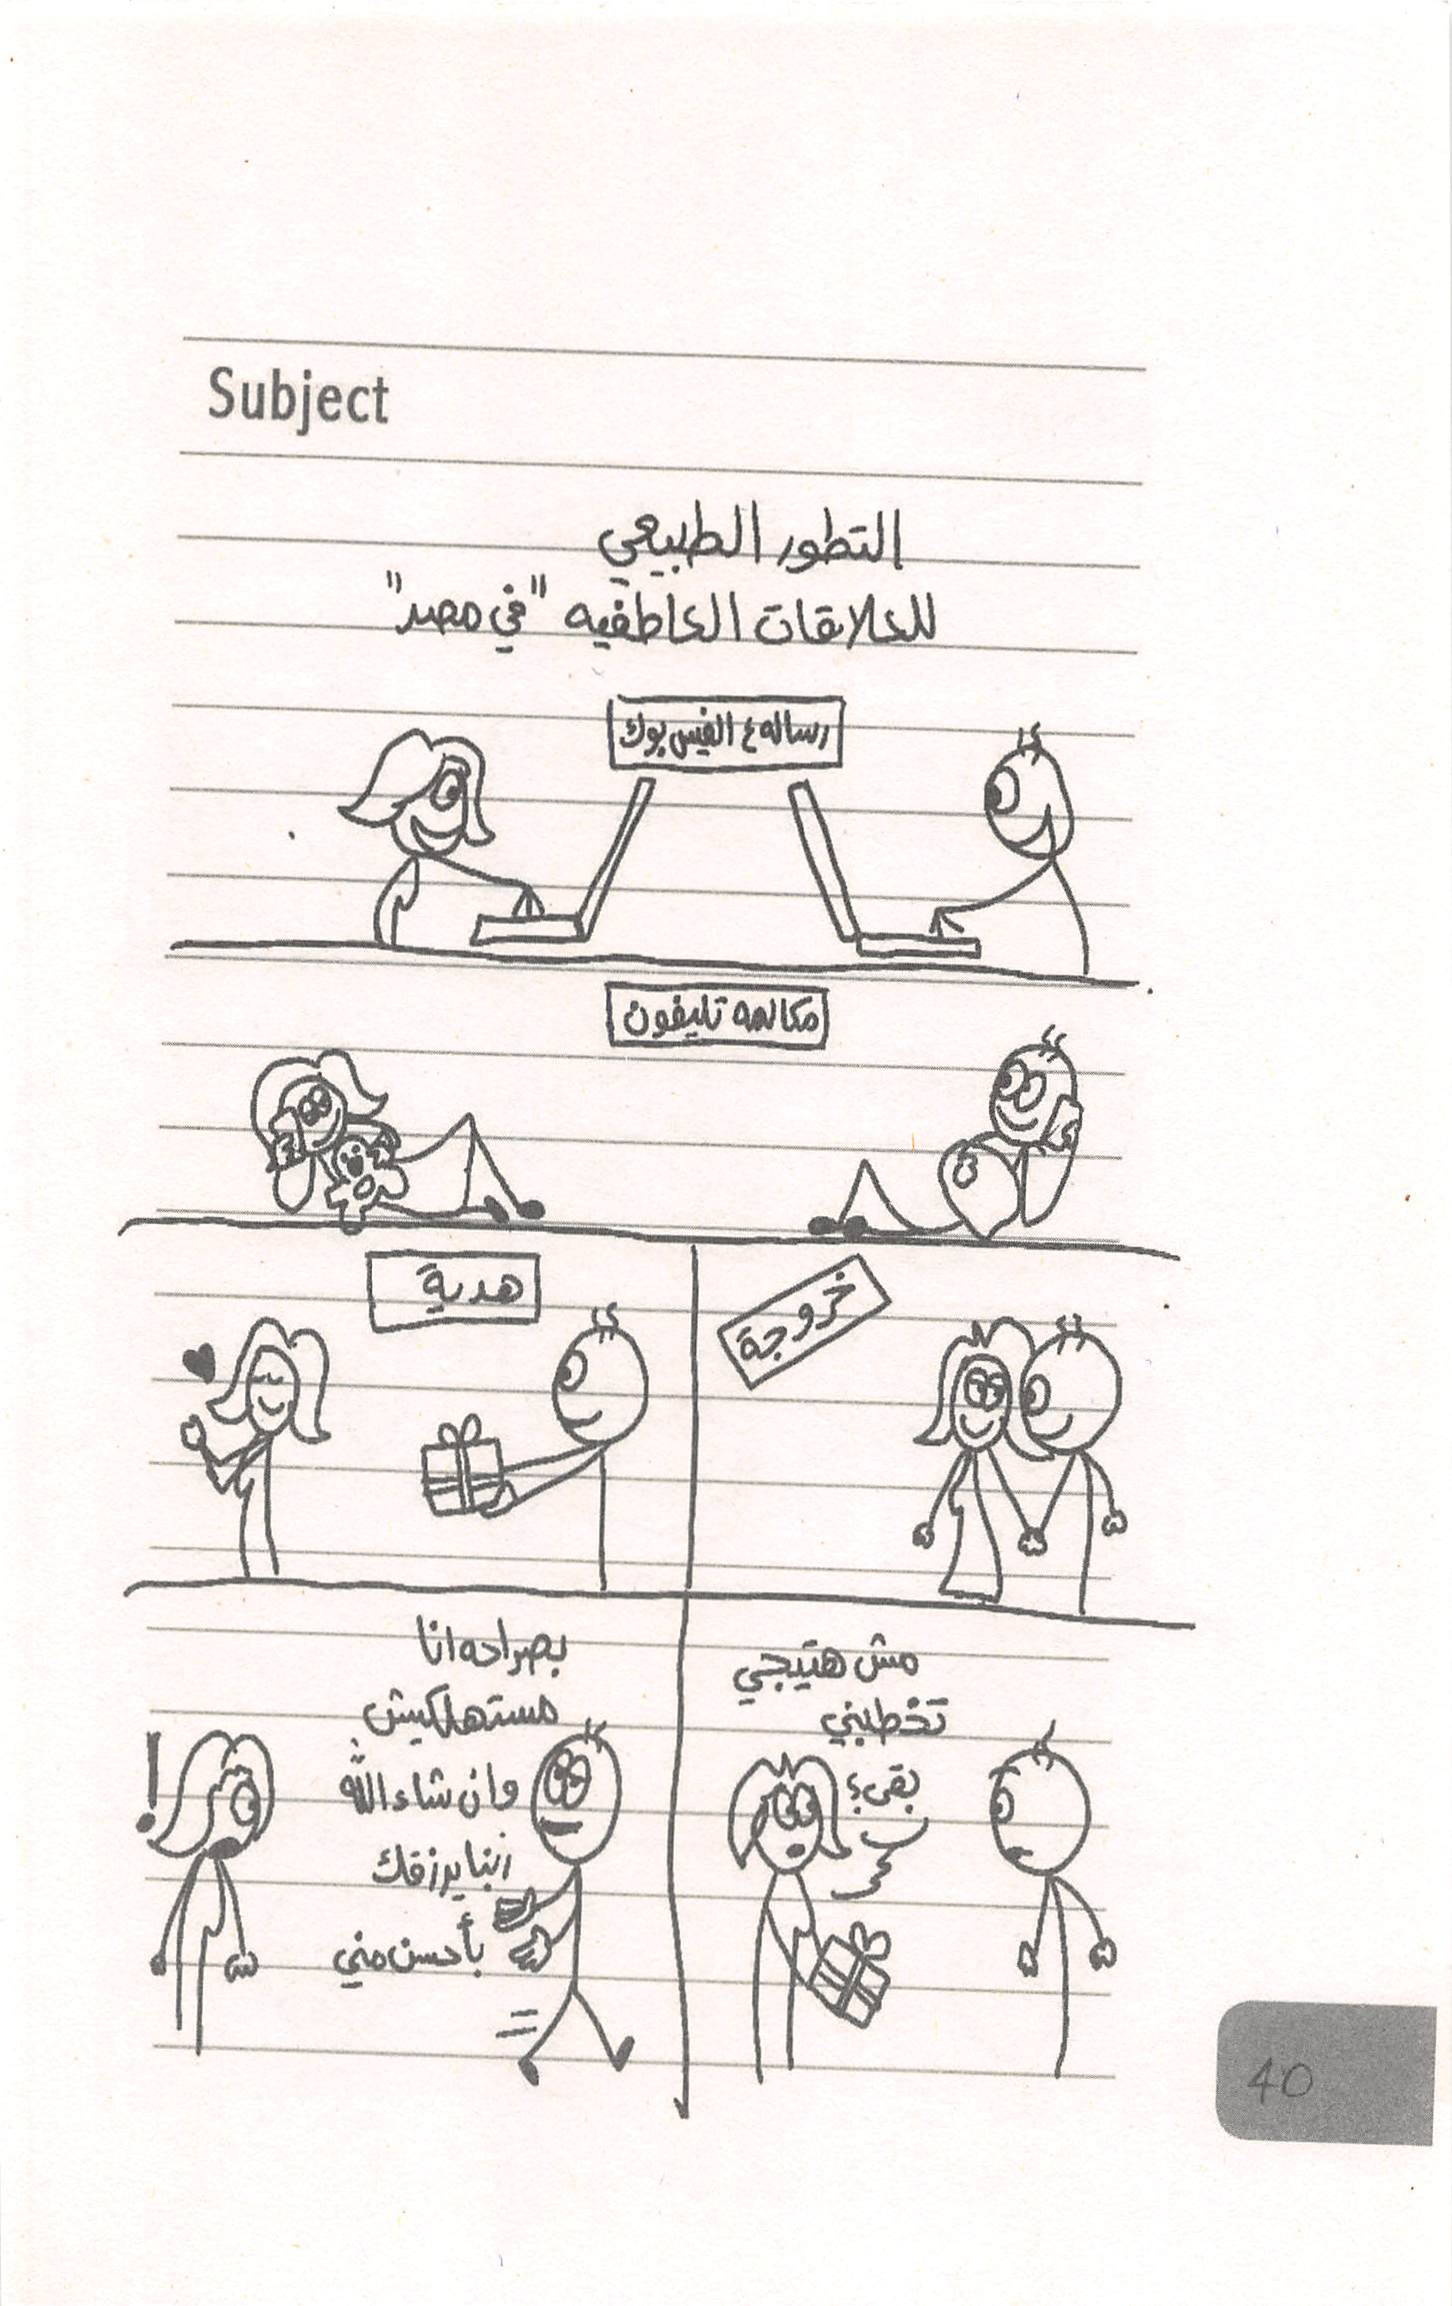 Subject
التطور الطبيعي
للعلاقات العاطفيه "في مصر"
رساله ع الفيس بوك
مكالمه تليفون
خروجة
هدية
مش هتيجي
تخطبني
بقى؟
بصراحه انا
مستهلكيش
وان شاء الله
ربنا يرزقك
بأحسن مني
40